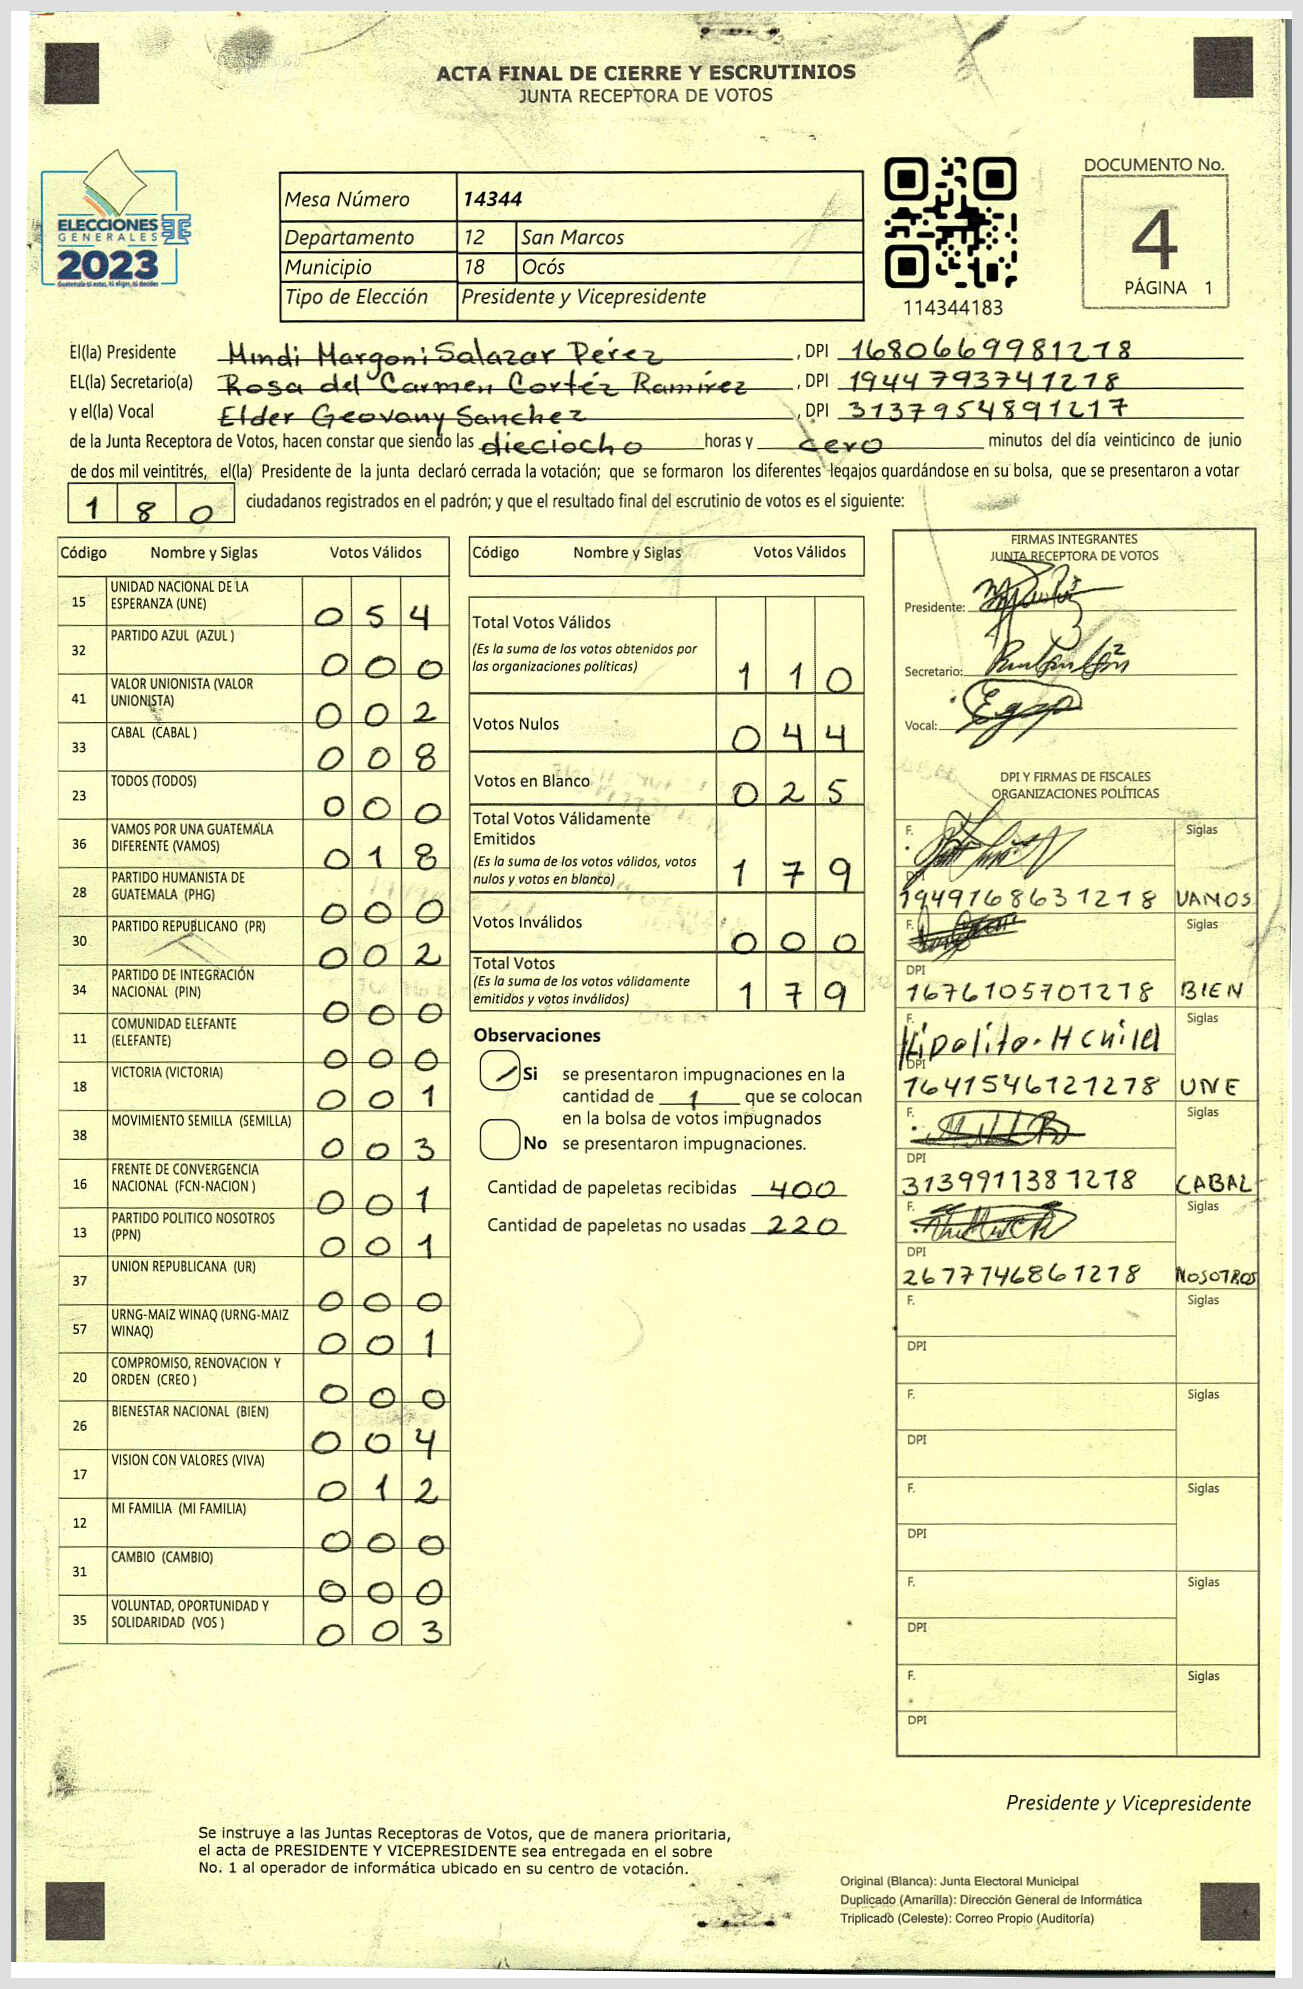 ACTA FINAL DE CIERRE Y ESCRUTINIOS
JUNTA RECEPTORA DE VOTOS
ELECCIONES
GENERALES
2023
Mesa Número 14344
Departamento 12 San Marcos
Municipio 18 Ocós
Tipo de Elección Presidente y Vicepresidente
114344183
DOCUMENTO No.
4
PÁGINA 1
El(la) Presidente Mindi Margoni Salazar Pérez, DPI 1680669981218
EL(la) Secretario(a) Rosa del Carmen Cortéz Ramírez, DPI 1944793741218
y el(la) Vocal Elder Geovany Sanchez, DPI 3137954891217
de la Junta Receptora de Votos, hacen constar que siendo las dieciocho horas y cero minutos del día veinticinco de junio
de dos mil veintitrés, el(la) Presidente de la junta declaró cerrada la votación; que se formaron los diferentes legajos guardándose en su bolsa, que se presentaron a votar
1 8 0 ciudadanos registrados en el padrón; y que el resultado final del escrutinio de votos es el siguiente:
Código Nombre y Siglas Votos Válidos
15 UNIDAD NACIONAL DE LA
ESPERANZA (UNE) 0 5 4
32 PARTIDO AZUL (AZUL ) 0 0 0
41 VALOR UNIONISTA (VALOR
UNIONISTA) 0 0 2
33 CABAL (CABAL ) 0 0 8
23 TODOS (TODOS) 0 0 0
36 VAMOS POR UNA GUATEMALA
DIFERENTE (VAMOS) 0 1 8
28 PARTIDO HUMANISTA DE
GUATEMALA (PHG) 0 0 0
30 PARTIDO REPUBLICANO (PR) 0 0 2
34 PARTIDO DE INTEGRACIÓN
NACIONAL (PIN) 0 0 0
11 COMUNIDAD ELEFANTE
(ELEFANTE) 0 0 0
18 VICTORIA (VICTORIA) 0 0 1
38 MOVIMIENTO SEMILLA (SEMILLA) 0 0 3
16 FRENTE DE CONVERGENCIA
NACIONAL (FCN-NACION ) 0 0 1
13 PARTIDO POLITICO NOSOTROS
(PPN) 0 0 1
37 UNION REPUBLICANA (UR) 0 0 0
57 URNG-MAIZ WINAQ (URNG-MAIZ
WINAQ) 0 0 1
20 COMPROMISO, RENOVACION Y
ORDEN (CREO ) 0 0 0
26 BIENESTAR NACIONAL (BIEN) 0 0 4
17 VISION CON VALORES (VIVA) 0 1 2
12 MI FAMILIA (MI FAMILIA) 0 0 0
31 CAMBIO (CAMBIO) 0 0 0
35 VOLUNTAD, OPORTUNIDAD Y
SOLIDARIDAD (VOS ) 0 0 3
Código Nombre y Siglas Votos Válidos
Total Votos Válidos
(Es la suma de los votos obtenidos por
las organizaciones políticas) 1 1 0
Votos Nulos 0 4 4
Votos en Blanco 0 2 5
Total Votos Válidamente
Emitidos
(Es la suma de los votos válidos, votos
nulos y votos en blanco) 1 7 9
Votos Inválidos 0 0 0
Total Votos
(Es la suma de los votos válidamente
emitidos y votos inválidos) 1 7 9
Observaciones
Si se presentaron impugnaciones en la
cantidad de 1 que se colocan
en la bolsa de votos impugnados
No se presentaron impugnaciones.
Cantidad de papeletas recibidas 400
Cantidad de papeletas no usadas 220
FIRMAS INTEGRANTES
JUNTA RECEPTORA DE VOTOS
Presidente:
Secretario:
Vocal:
DPI Y FIRMAS DE FISCALES
ORGANIZACIONES POLÍTICAS
F. Siglas
DPI
1949168631218 VAMOS
F. Siglas
DPI
1676105701218 BIEN
F. Siglas
DPI
1641546121278 UNE
F. Siglas
DPI
3139911381218 CABAL
F. Siglas
DPI
2677746861278 NOSOTROS
F. Siglas
DPI
F. Siglas
DPI
F. Siglas
DPI
F. Siglas
DPI
F. Siglas
DPI
Presidente y Vicepresidente
Se instruye a las Juntas Receptoras de Votos, que de manera prioritaria,
el acta de PRESIDENTE Y VICEPRESIDENTE sea entregada en el sobre
No. 1 al operador de informática ubicado en su centro de votación.
Original (Blanca): Junta Electoral Municipal
Duplicado (Amarilla): Dirección General de Informática
Triplicado (Celeste): Correo Propio (Auditoría)